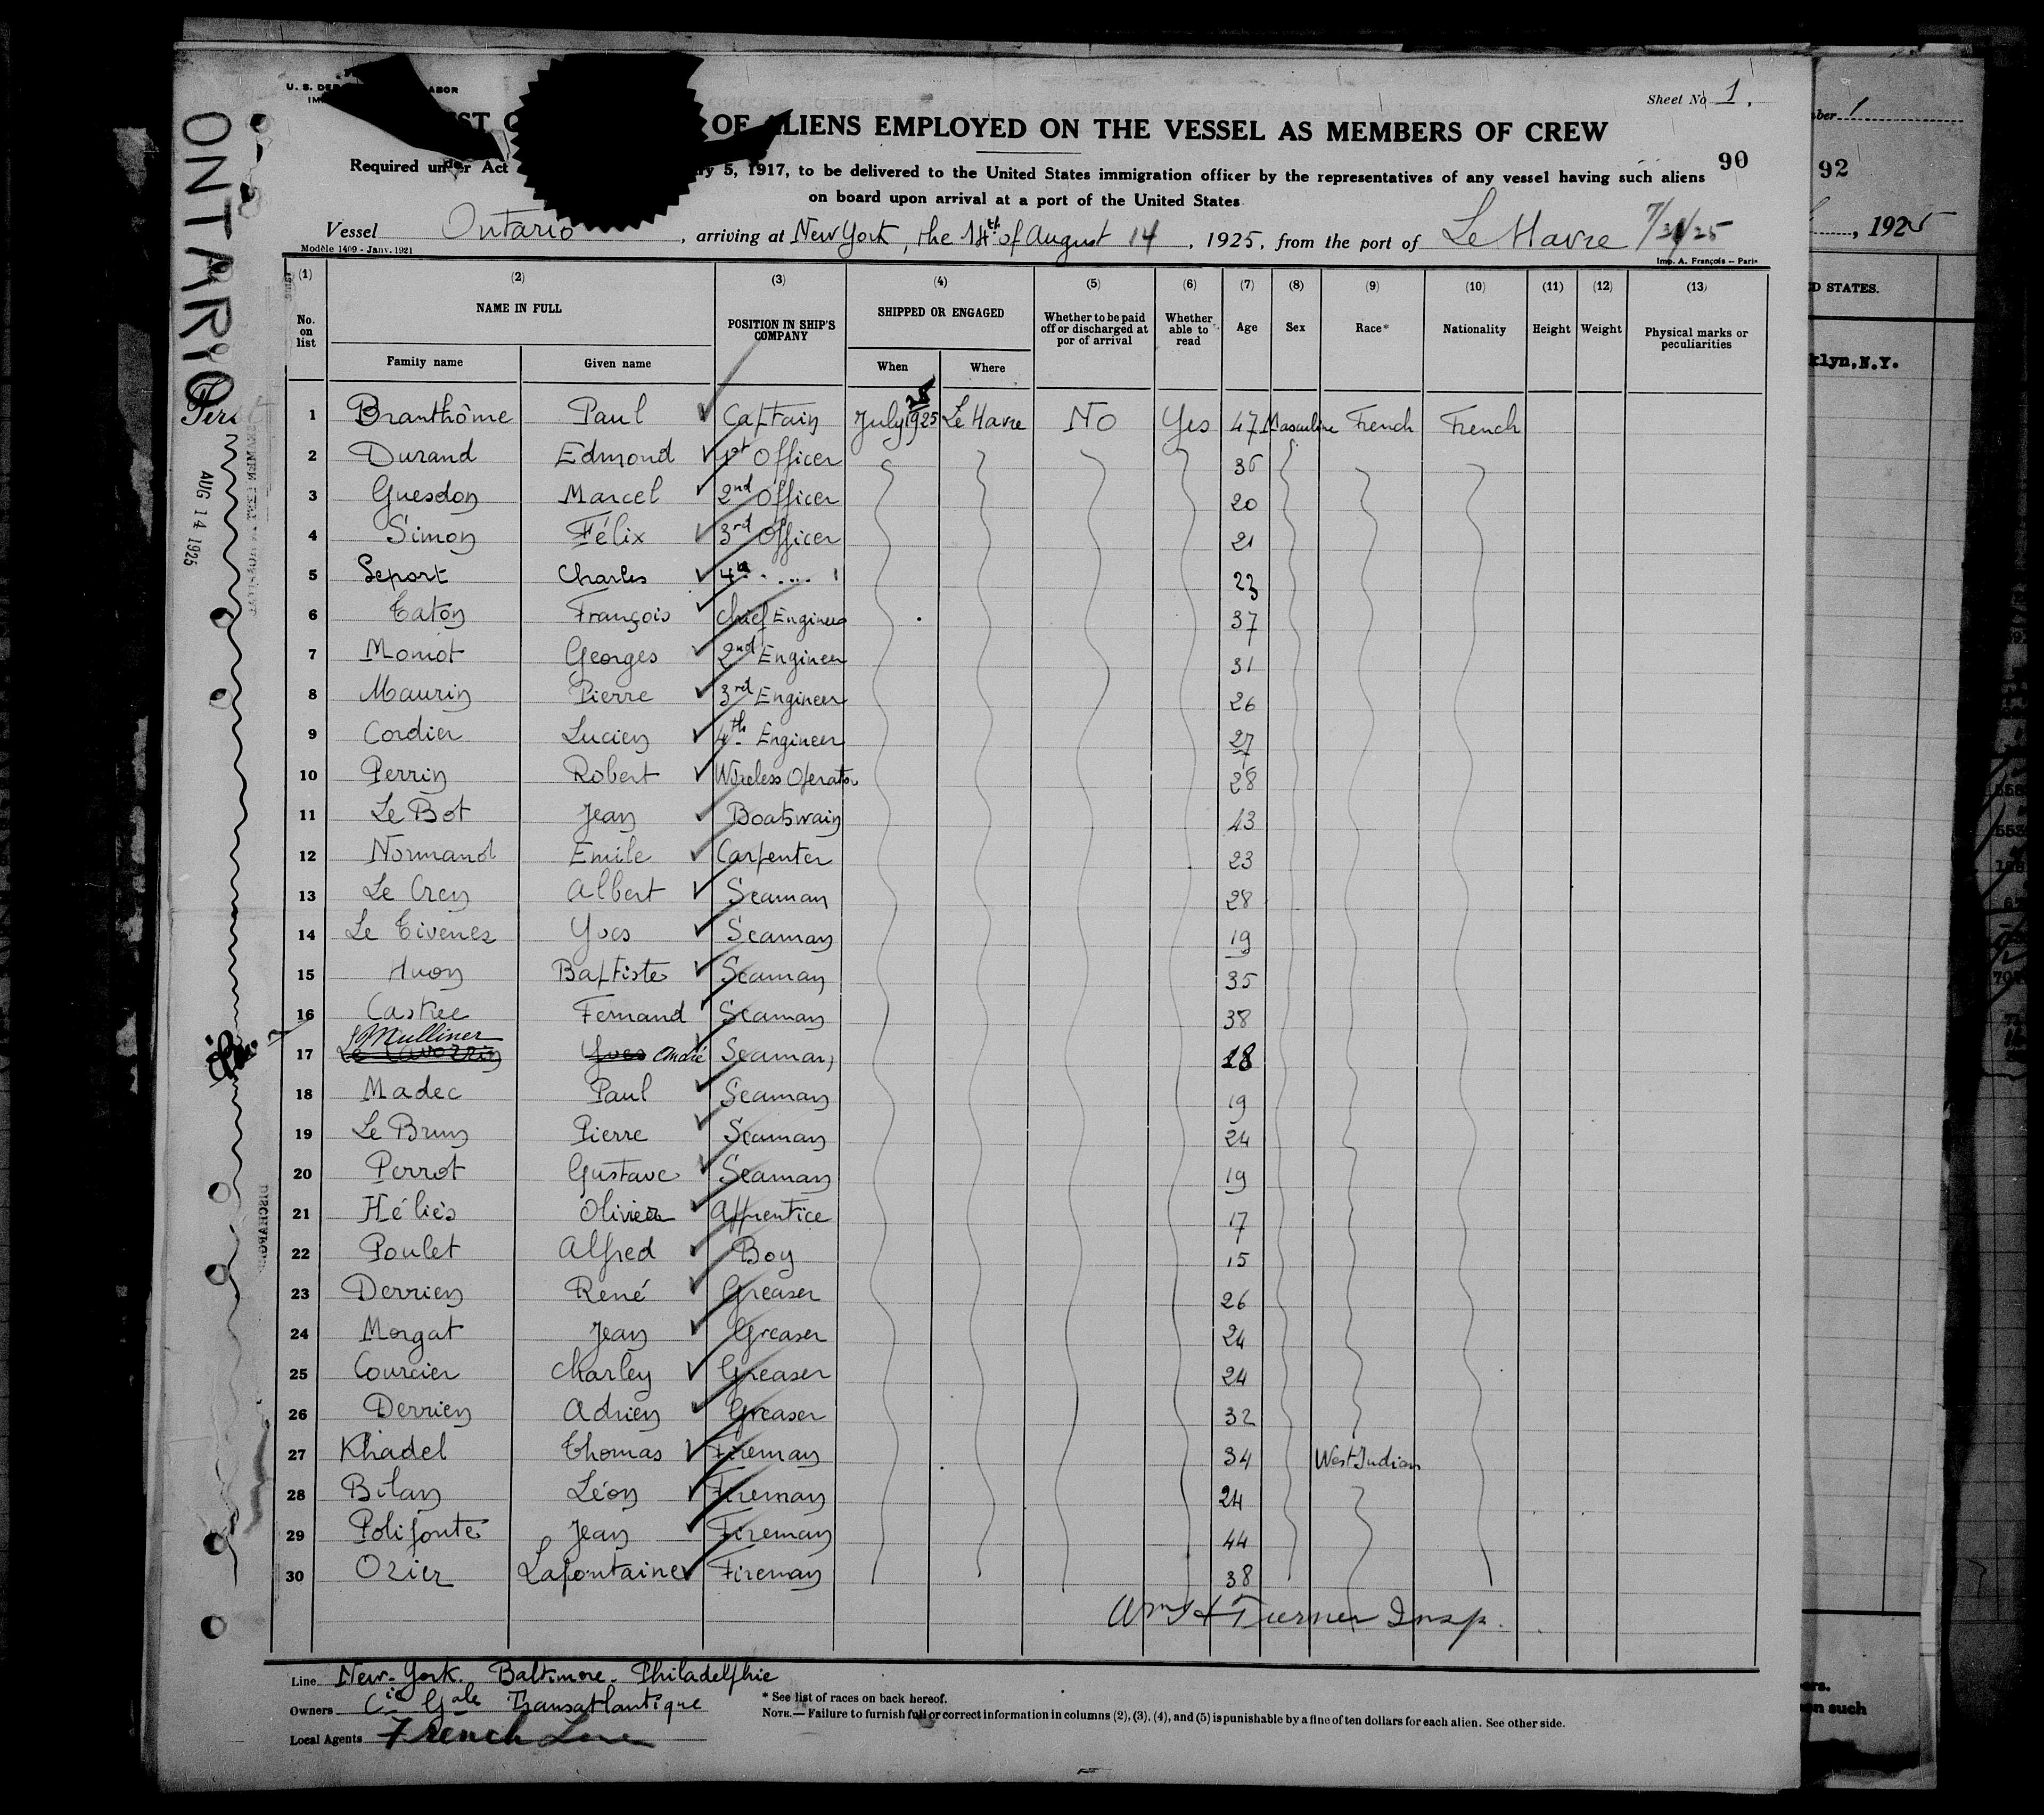 U. S. DE ABOR
Sheet No 1.
OF ALIENS EMPLOYED ON THE VESSEL AS MEMBERS OF CREW
90
Required under Act ry 5, 1917, to be delivered to the United States immigration officer by the representatives of any vessel having such aliens
on board upon arrival at a port of the United States
Vessel Ontario, arriving at New York, the 14th of August 14, 1925, from the port of Le Havre 7/31/25
Modèle 1409 - Janv. 1921
Imp. A. François — Paris
(1) (2) (3) (4) (5) (6) (7) (8) (9) (10) (11) (12) (13)
No. on list NAME IN FULL POSITION IN SHIP'S COMPANY SHIPPED OR ENGAGED Whether to be paid off or discharged at por of arrival Whether able to read Age Sex Race* Nationality Height Weight Physical marks or peculiarities
Family name Given name When Where
1 Branthôme Paul Captain July 1925 Le Havre No Yes 47 Masculine French French
2 Durand Edmond 1st Officer 36
3 Guesdon Marcel 2nd Officer 20
4 Simon Félix 3rd Officer 21
5 Seport Charles 4th .... 23
6 Taton François Chief Engineer 37
7 Moniot Georges 2nd Engineer 31
8 Maurin Pierre 3rd Engineer 26
9 Cordier Lucien 4th Engineer 27
10 Perrin Robert Wireless Operator 28
11 Le Bot Jean Boatswain 43
12 Normand Emile Carpenter 23
13 Le Cren Albert Seaman 28
14 Le Tivenez Yves Seaman 19
15 Huon Baptiste Seaman 35
16 Castrec Fernand Seaman 38
17 Mulliner Yves André Seaman 18
18 Madec Paul Seaman 19
19 Le Brun Pierre Seaman 24
20 Perrot Gustave Seaman 19
21 Héliès Olivier Apprentice 17
22 Poulet Alfred Boy 15
23 Derrien René Greaser 26
24 Morgat Jean Greaser 24
25 Courcier Charley Greaser 24
26 Derrien Adrien Greaser 32
27 Khadel Thomas Fireman 34 West Indian
28 Bilan Léon Fireman 24
29 Polifonte Jean Fireman 44
30 Ozier Lafontaine Fireman 38
Wm H Turner Insp.
Line New-York. Baltimore. Philadelphie
Owners Cie Gale Transatlantique
* See list of races on back hereof.
NOTE.— Failure to furnish full or correct information in columns (2), (3), (4), and (5) is punishable by a fine of ten dollars for each alien. See other side.
Local Agents French Line
ONTARIO
AUG 14 1925
ber 1
92
, 1925
D STATES.
klyn, N.Y.
on such